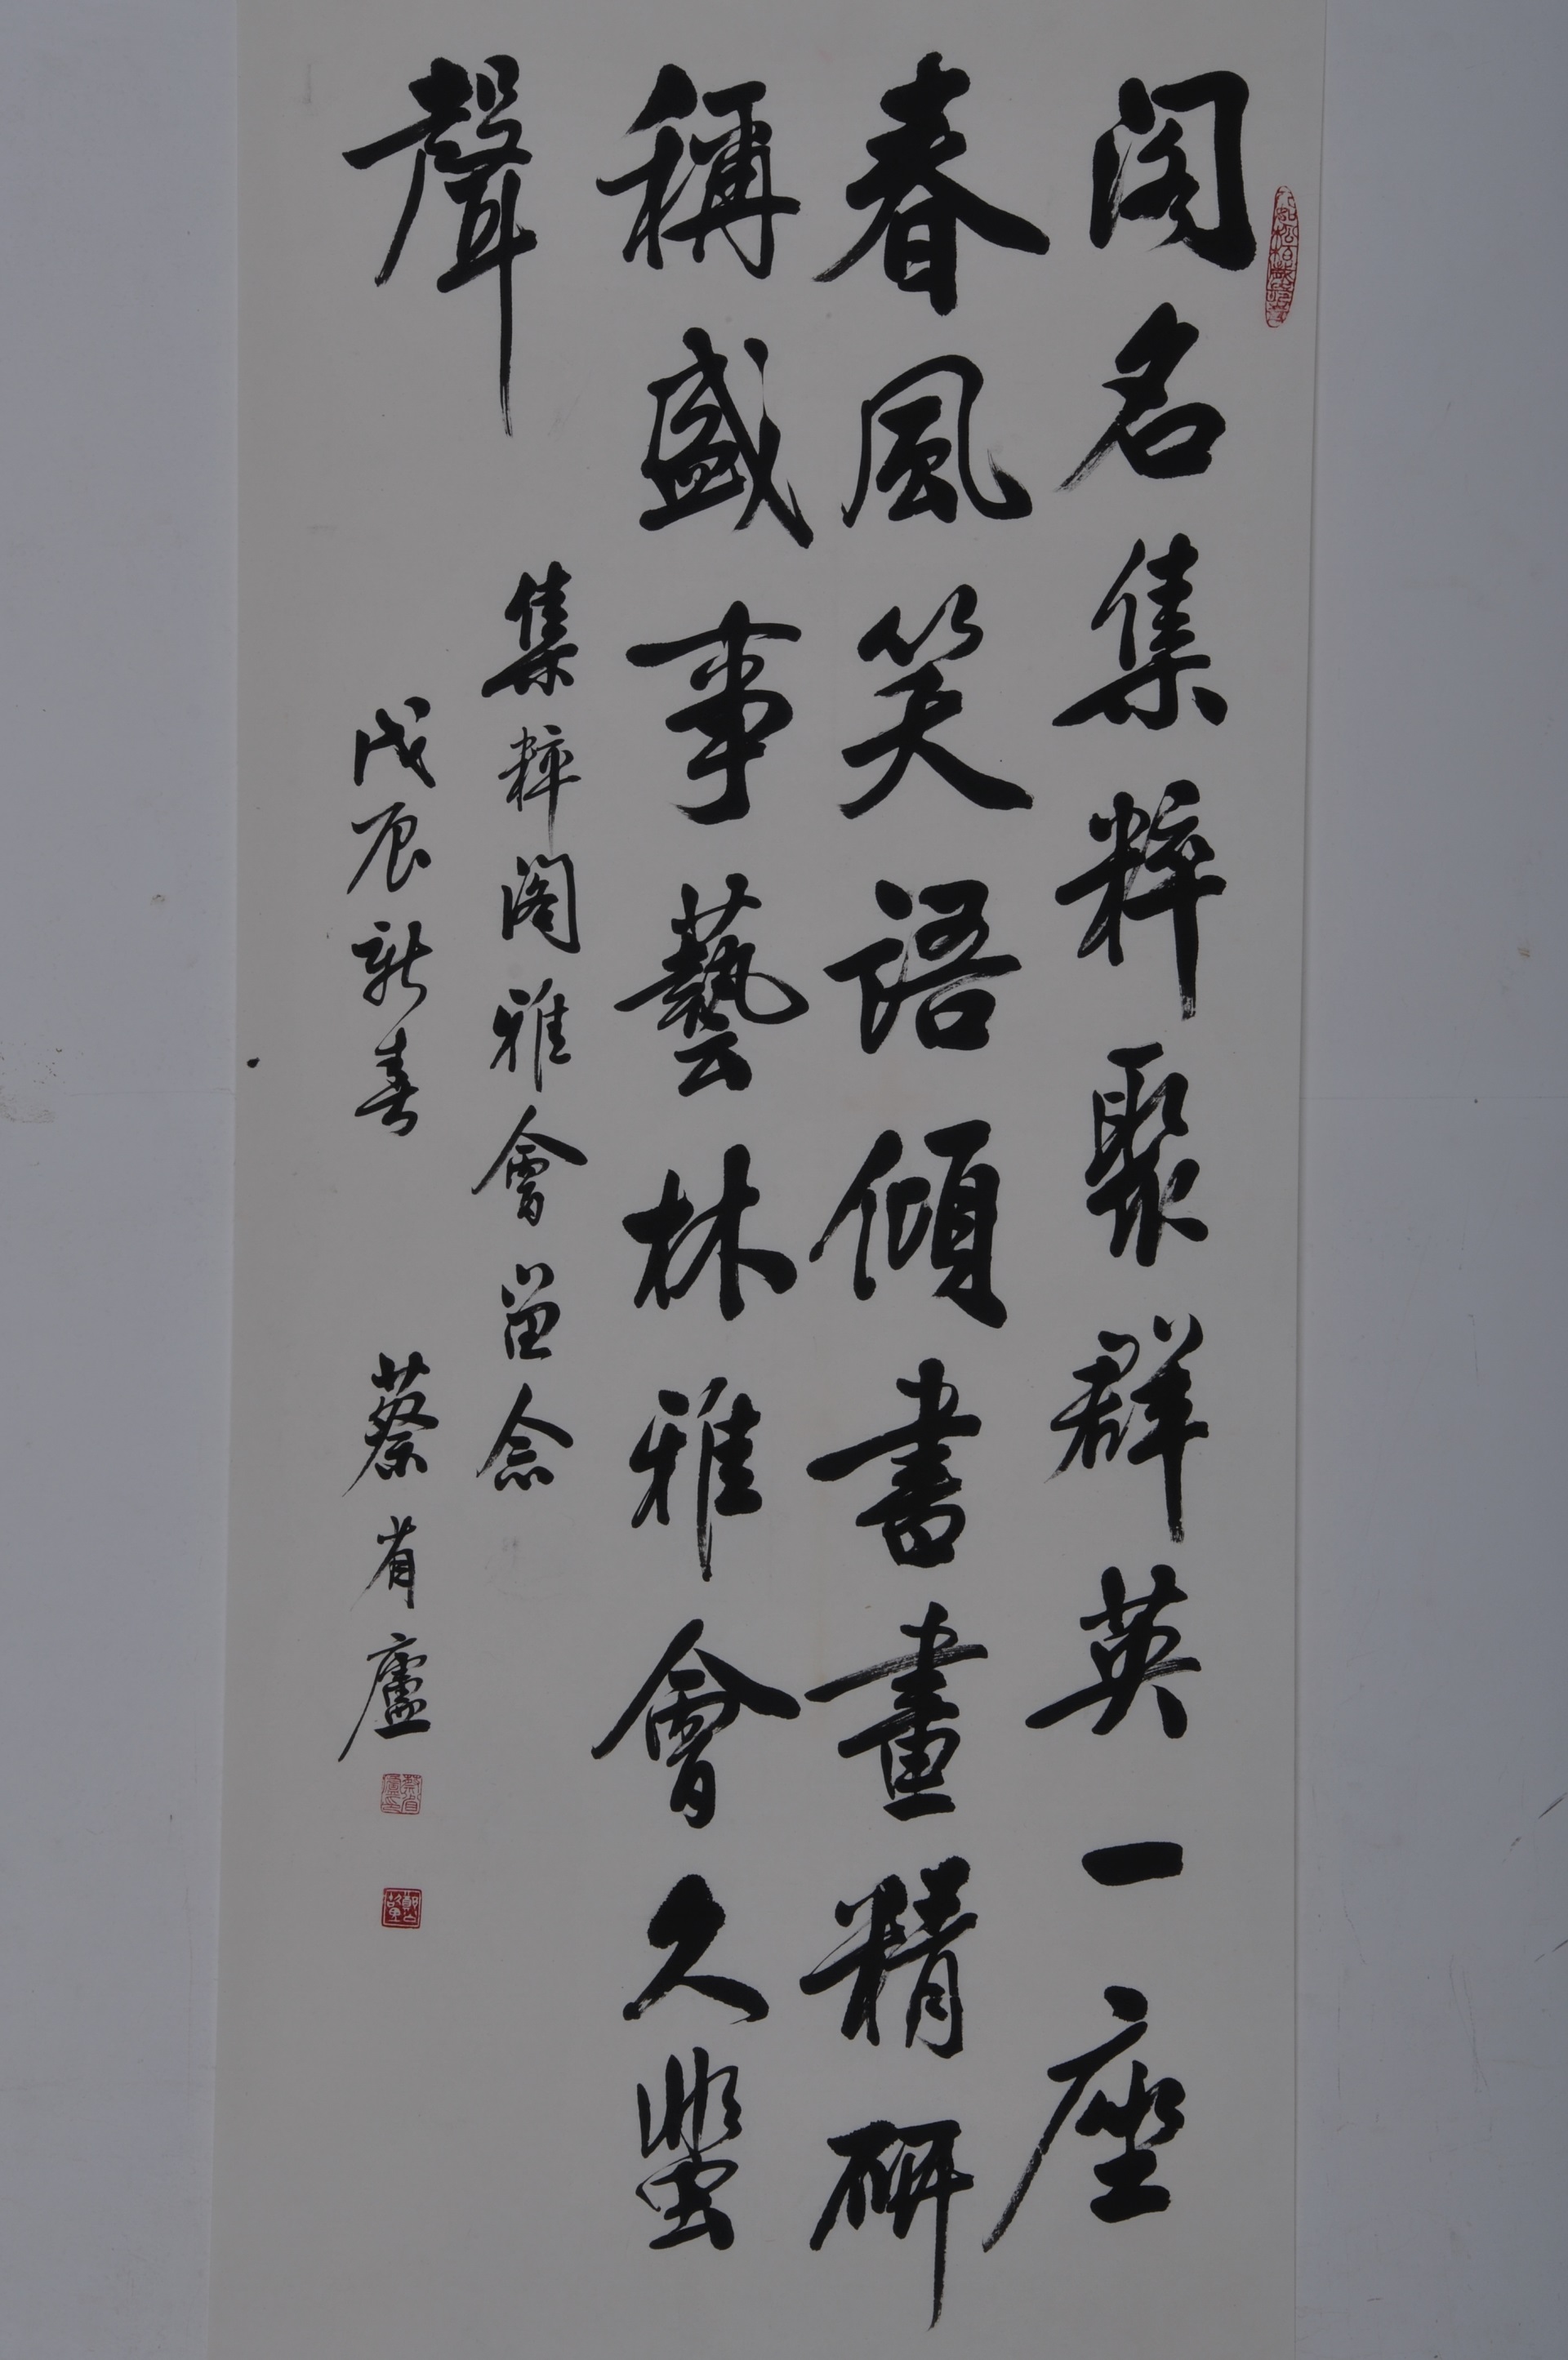 阁名集粹聚群英一座
春風笑語傾書畫精研
稱盛事藝林雅會久蜚
聲
集粹阁雅會留念
戊辰新春 蔡省廬